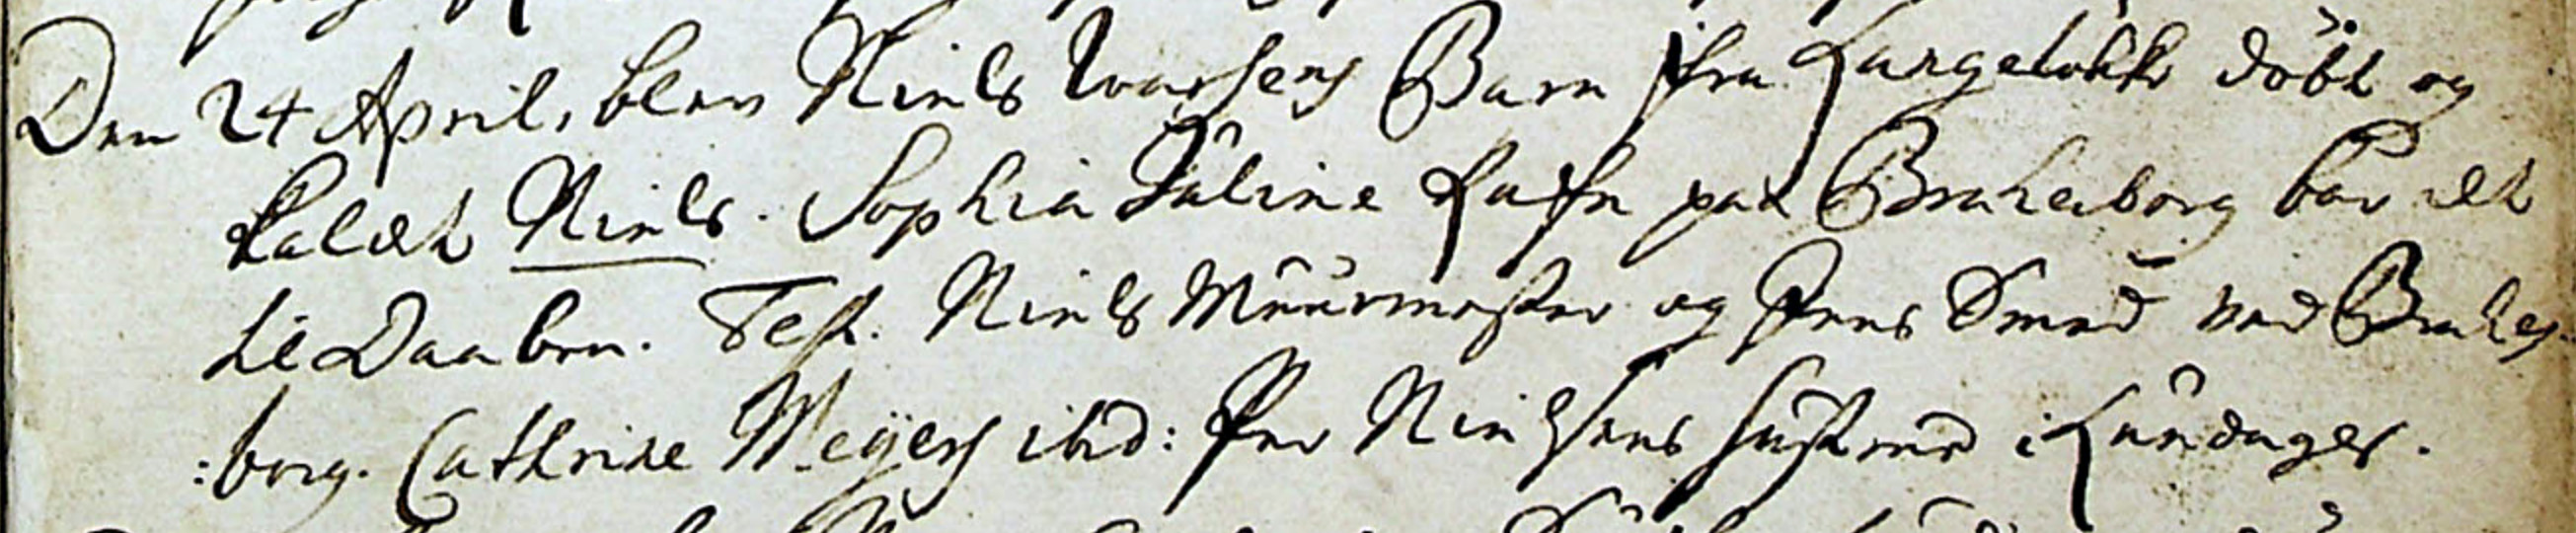 Den 24 April, blev Niels Ivarsens Barn fra Langeløkke döbt og
kaldet Niels. Sophia Juline Rafn paa Braheborg bar det
til Daaben. Test. Niels Muurmester og Jens Smed ved Brahes-
:borg. Cathrine Meyers ibid: Per Nielsens Hustrue i